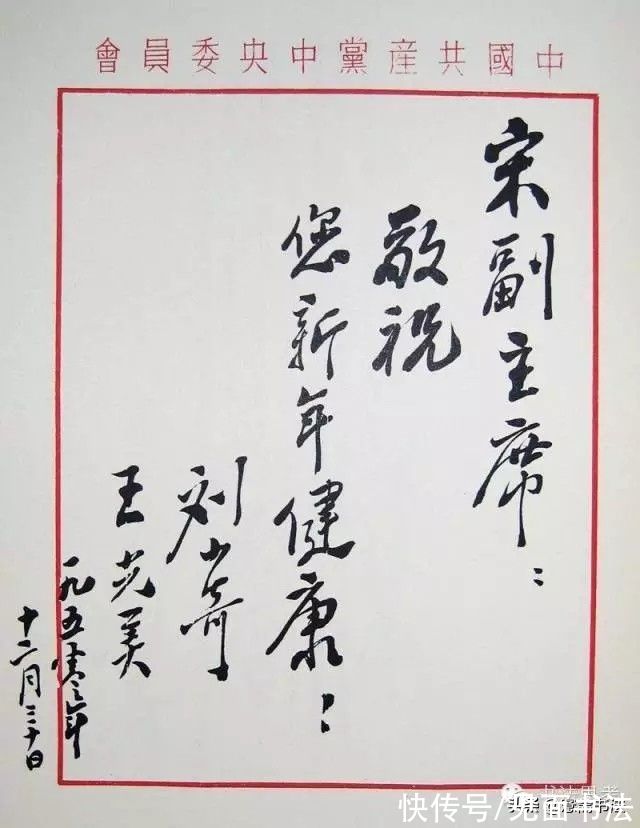 中國共産黨中央委員會
宋副主席：
敬祝
您新年健康！
刘少奇
王光美
一九五零年
十二月三十日
书法思考
头条
快传号/见面书法